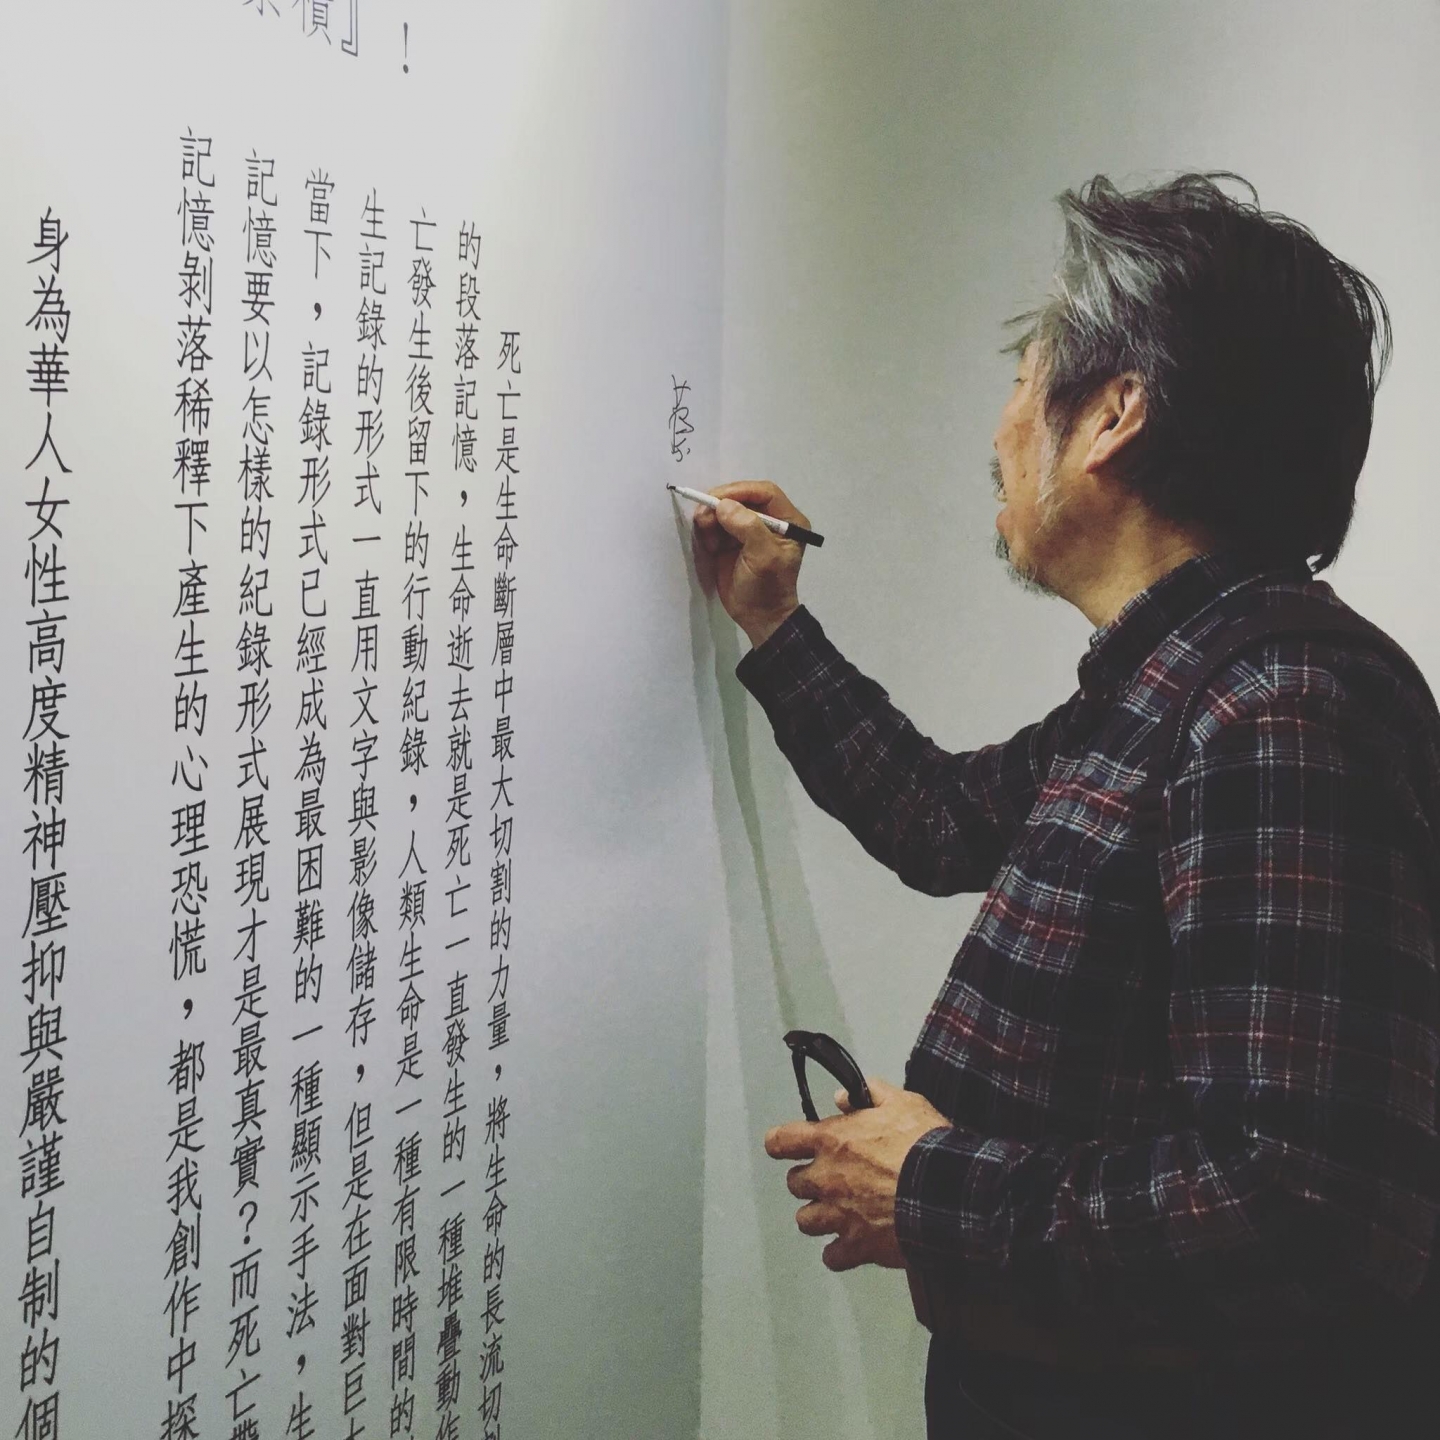 積』！
死亡是生命斷層中最大切割的力量，將生命的長流切割
的段落記憶，生命逝去就是死亡一直發生的一種堆疊動作
亡發生後留下的行動紀錄，人類生命是一種有限時間的
生記錄的形式一直用文字與影像儲存，但是在面對巨大
當下，記錄形式已經成為最困難的一種顯示手法，生
記憶要以怎樣的紀錄形式展現才是最真實？而死亡帶
記憶剝落稀釋下產生的心理恐慌，都是我創作中探
身為華人女性高度精神壓抑與嚴謹自制的個